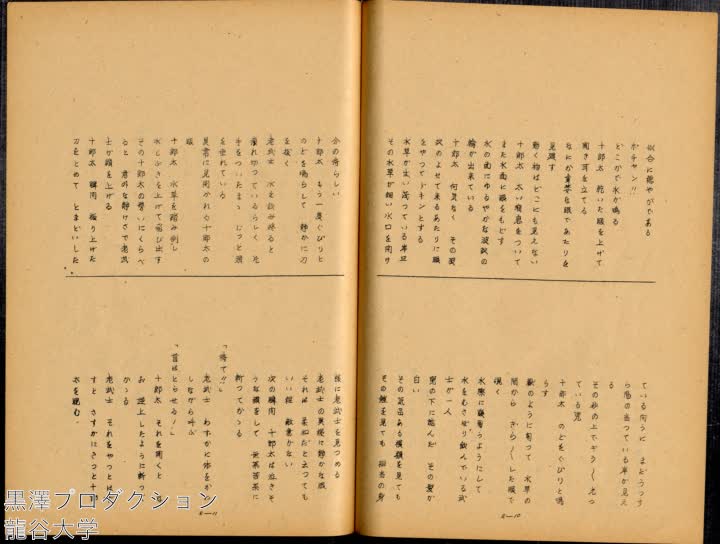 似合に穏やかである
ボチャン!!
どこかで水が鳴る
十郎太 乾いた眼を上げて
聞き耳を立てる
なにか兇暴な眼であたりを
見廻す
動く物はどこにも見えない
十郎太 太い溜息をついて
また水面に眼をもどす
水の面にゆるやかな波紋の
輪が出来ている
十郎太 何気なく その波
紋のよせて来るあたりに眼
をやってドキンとする
水草が生い茂っている岸辺
その水草が細い水口を開け
ている向うに まどうつす
ら陽の当っている岸が見え
る
その砂の上でギラ〳〵光っ
ている兜
十郎太 のどをぐびりと鳴
らす
獣のように匐って 水草の
間から ぎら〳〵した眼で
覗く
水際に腹匐うようにして
水をむさぼり飲んでいる武
士が一人
兜の下に覗んだ その髪が
白い
その気品ある横顔を見ても
その鎧を見ても 相当の身
分の者らしい
十郎太 もう一度ぐびりと
のどを鳴らして 静かに刀
を抜く
老武士 水を飲み終ると
疲れ切っているらしく 光
手をついたまゝ じっと頭
を垂れている
異常に見開かれた十郎太の
眼
十郎太 水草を踏み倒し
水しぶきを上げて飛び出す
その十郎太の勢いにくらべ
ると 意外な静けさで老武
士が顔を上げる
十郎太 瞬間 振り上げた
刀をとめて とまどいした
様に老武士を見つめる
老武士の異様に静かな眼
それは 柔和だと云っても
いい位 敵意がない
次の瞬間 十郎太は泣きそ
うな顔をして 無茶苦茶に
斬ってかゝる
「待て!!」
老武士 わずかに体をかわ
しながら叫ぶ
「首はとらせる!」
十郎太 それを聞くと 逆
お 逆上したように斬って
かゝる
老武士 それをやっとはず
すと さすがにきっと十郎
太を睨む
8—11
8—10
黒澤プロダクション
龍谷大学